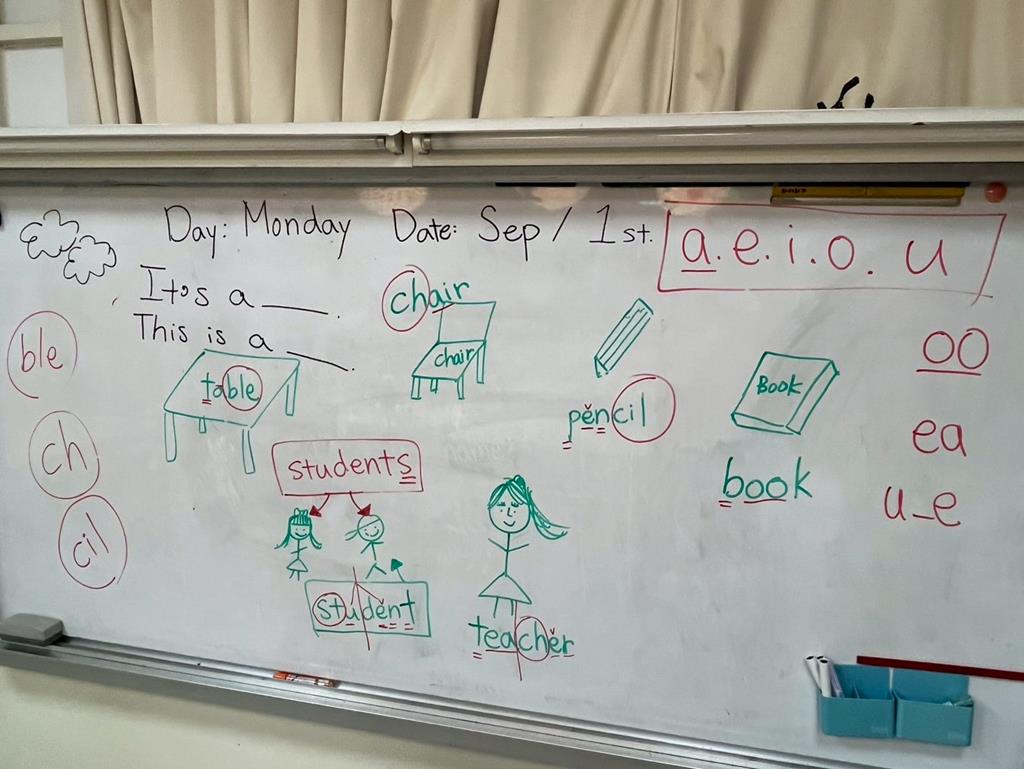 Day: Monday Date: Sep / 1st.
a.e.i.o.u
It's a ___.
This is a ___.
chair
chair
ble
table
pĕncil
Book
book
oo
ea
u_e
ch
cil
students
studĕnt
teachĕr